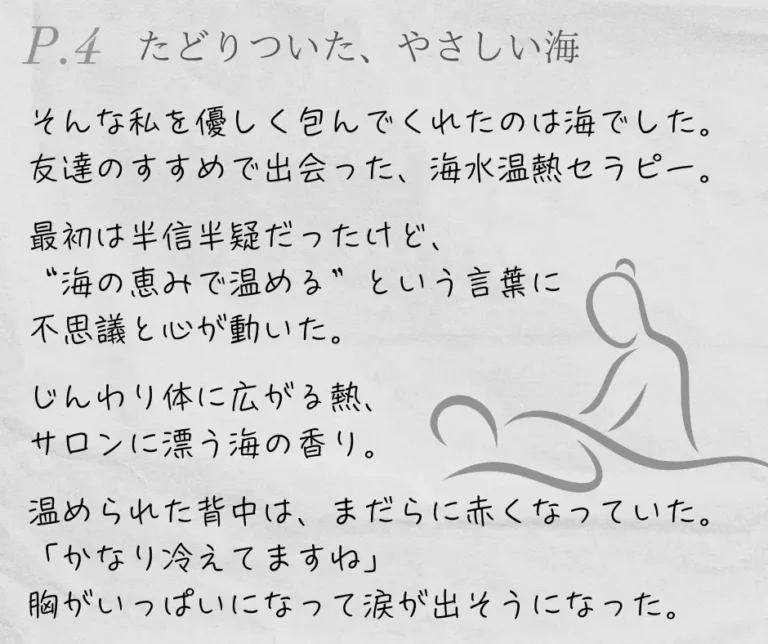 P.4 たどりついた、やさしい海
そんな私を優しく包んでくれたのは海でした。
友達のすすめで出会った、海水温熱セラピー。
最初は半信半疑だったけど、
“海の恵みで温める”という言葉に
不思議と心が動いた。
じんわり体に広がる熱、
サロンに漂う海の香り。
温められた背中は、まだらに赤くなっていた。
「かなり冷えてますね」
胸がいっぱいになって涙が出そうになった。